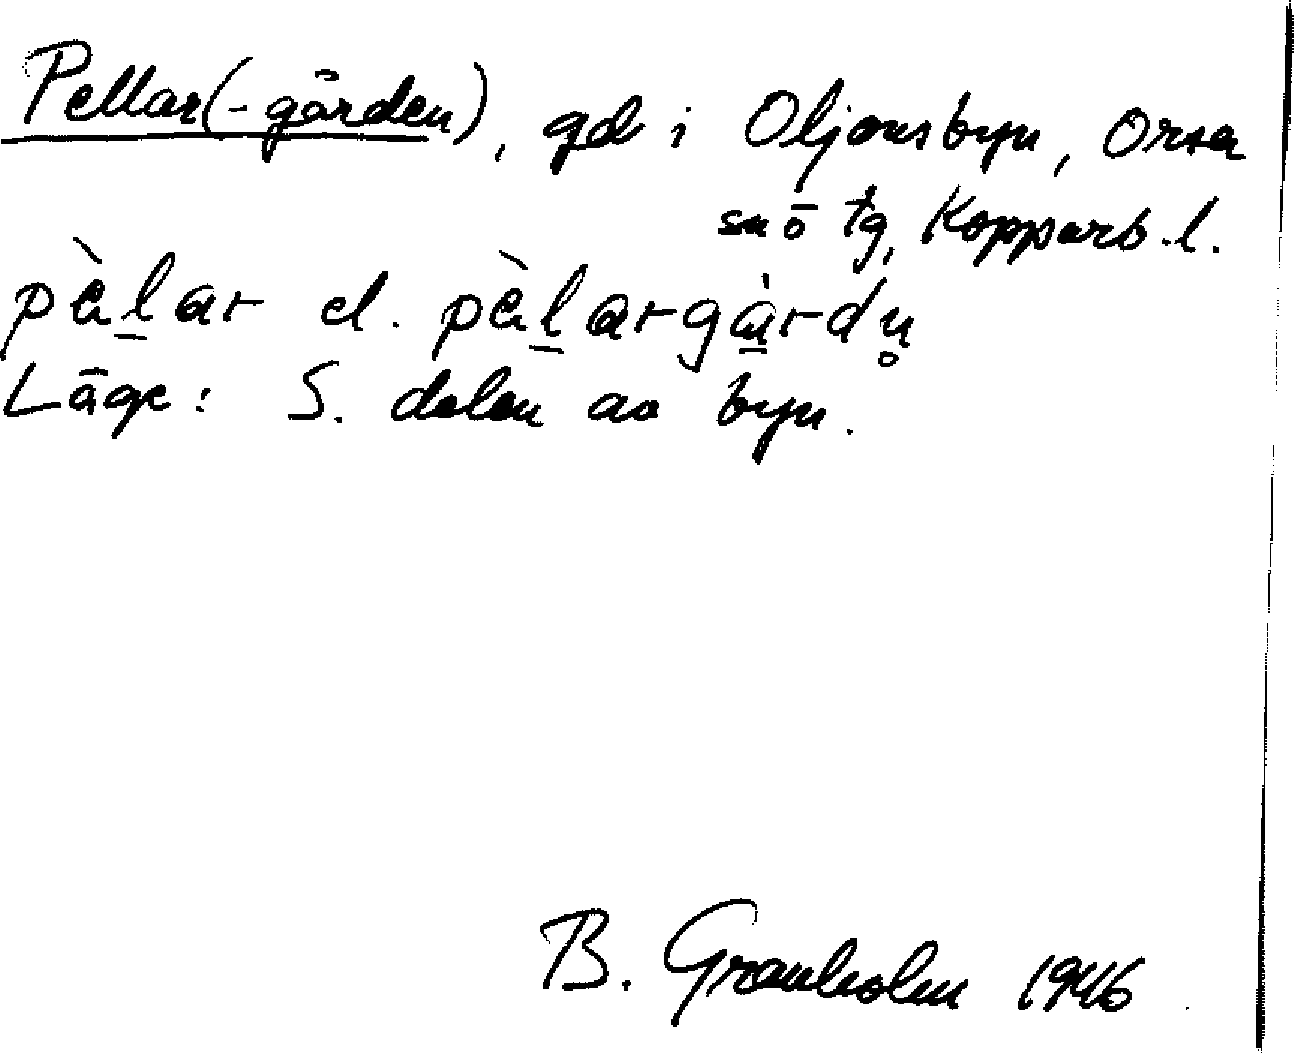 Pellar(-gården), gd i Oljonsbyn, Orsa
sn o tg, Kopparb. l.
pèl̠ar el. pèl̠argà̠rdn̥
Läge: S. delen av byn.
B. Granholm 1946